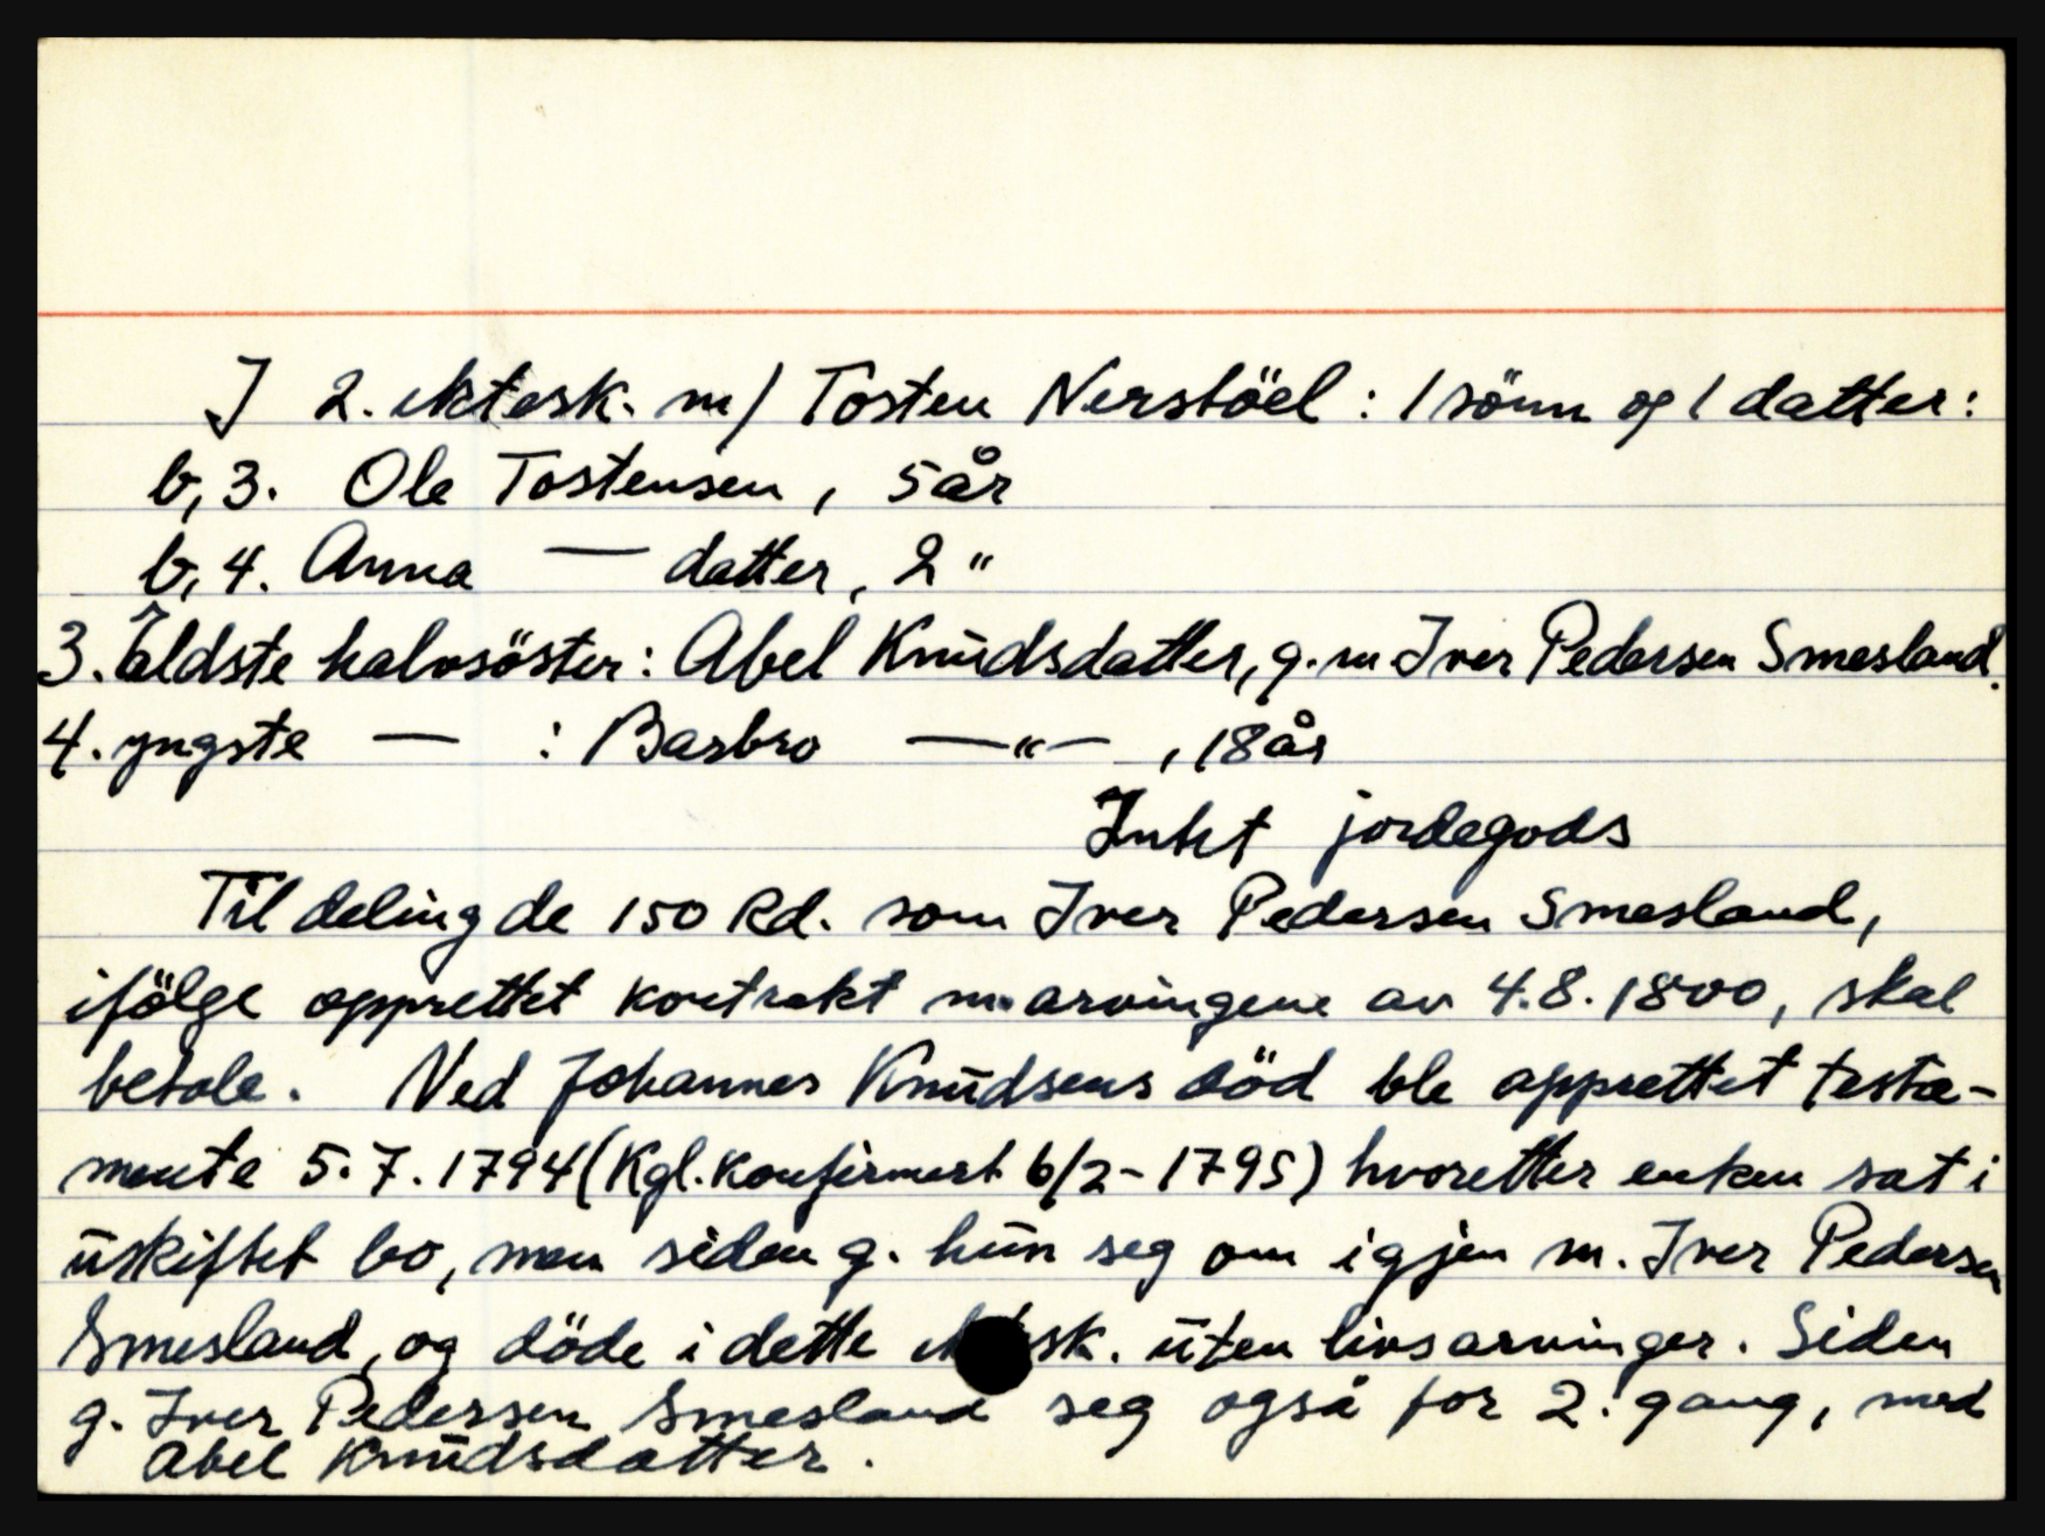 I 2. ektesk. m/ Tosten Nerstöel : 1 sönn og 1 datter:
b,3. Ole Tostensen, 5 år
b,4. Anna — datter, 2 "
3. Eldste halvsöster: Abel Knudsdatter, g.m Iver Pedersen Smesland.
4. yngste — : Barbro —"— , 18 år
Intet jordegods
Til deling de 150 Rd. som Iver Pedersen Smesland,
ifölge opprettet kontrakt m. arvingene av 4.8.1800, skal
betale. Ved Johannes Knudsens död ble opprettet testa-
mente 5.7.1794 (Kgl. konfirmert 6/2-1795) hvoretter enken sat i
uskiftet bo, men siden g. hun seg om igjen m. Iver Pedersen
Smesland, og döde i dette sk. uten livsarvinger. Siden
g. Iver Pedersen Smesland seg også for 2. gang, med
Abel Knudsdatter.